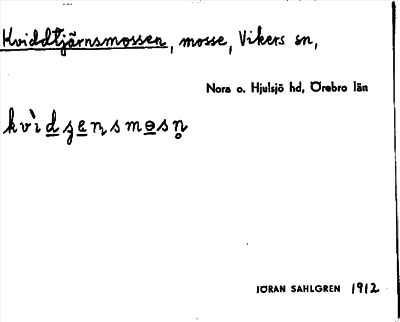 Kviddtjärnsmossen, mosse, Vikers sn,
Nora o. Hjulsjö hd, Örebro län
JÖRAN SAHLGREN 1912